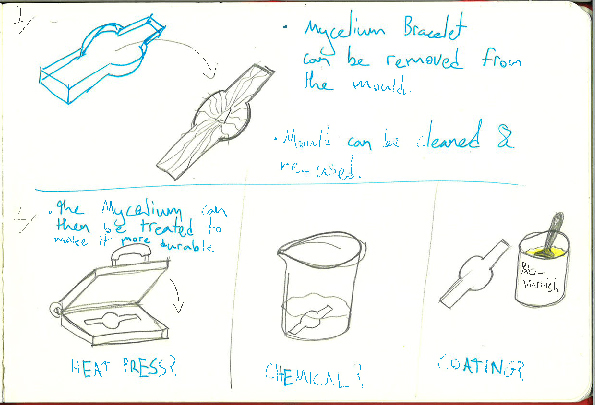 • Mycelium Bracelet
can be removed from
the mould.
• Mould can be cleaned &
re-used.
• The Mycelium can
then be treated to
make it more durable
Bio-
varnish
HEAT PRESS?
CHEMICAL?
COATING?